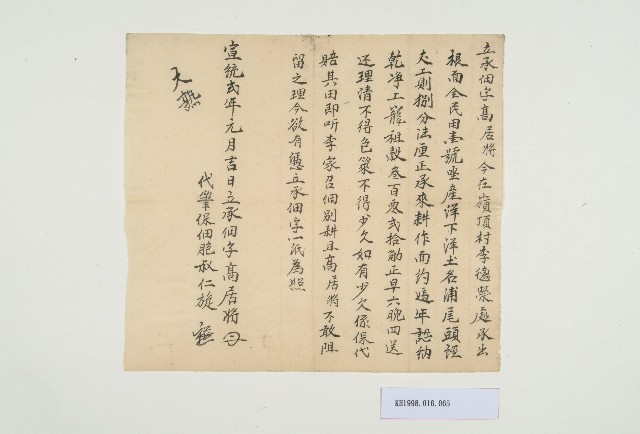 立承佃字高居将今在嶺頂村李德榮處承出
根面全民田壹號坐産洋下洋土名浦尾頭經
丈工則捌分法厘正承來耕作面約遞年認納
乾净工籮租穀叁百零弍拾觔正早六晚四送
还理清不得色粟不得少欠如有少欠係保代
賠其田即听李家召佃别耕且高居将不敢阻
留之理今欲有憑立承佃字一紙為照
宣統弍年元月吉日立承佃字高居将
代筆保佃胞叔仁旋
大熟
KH1998.016.065